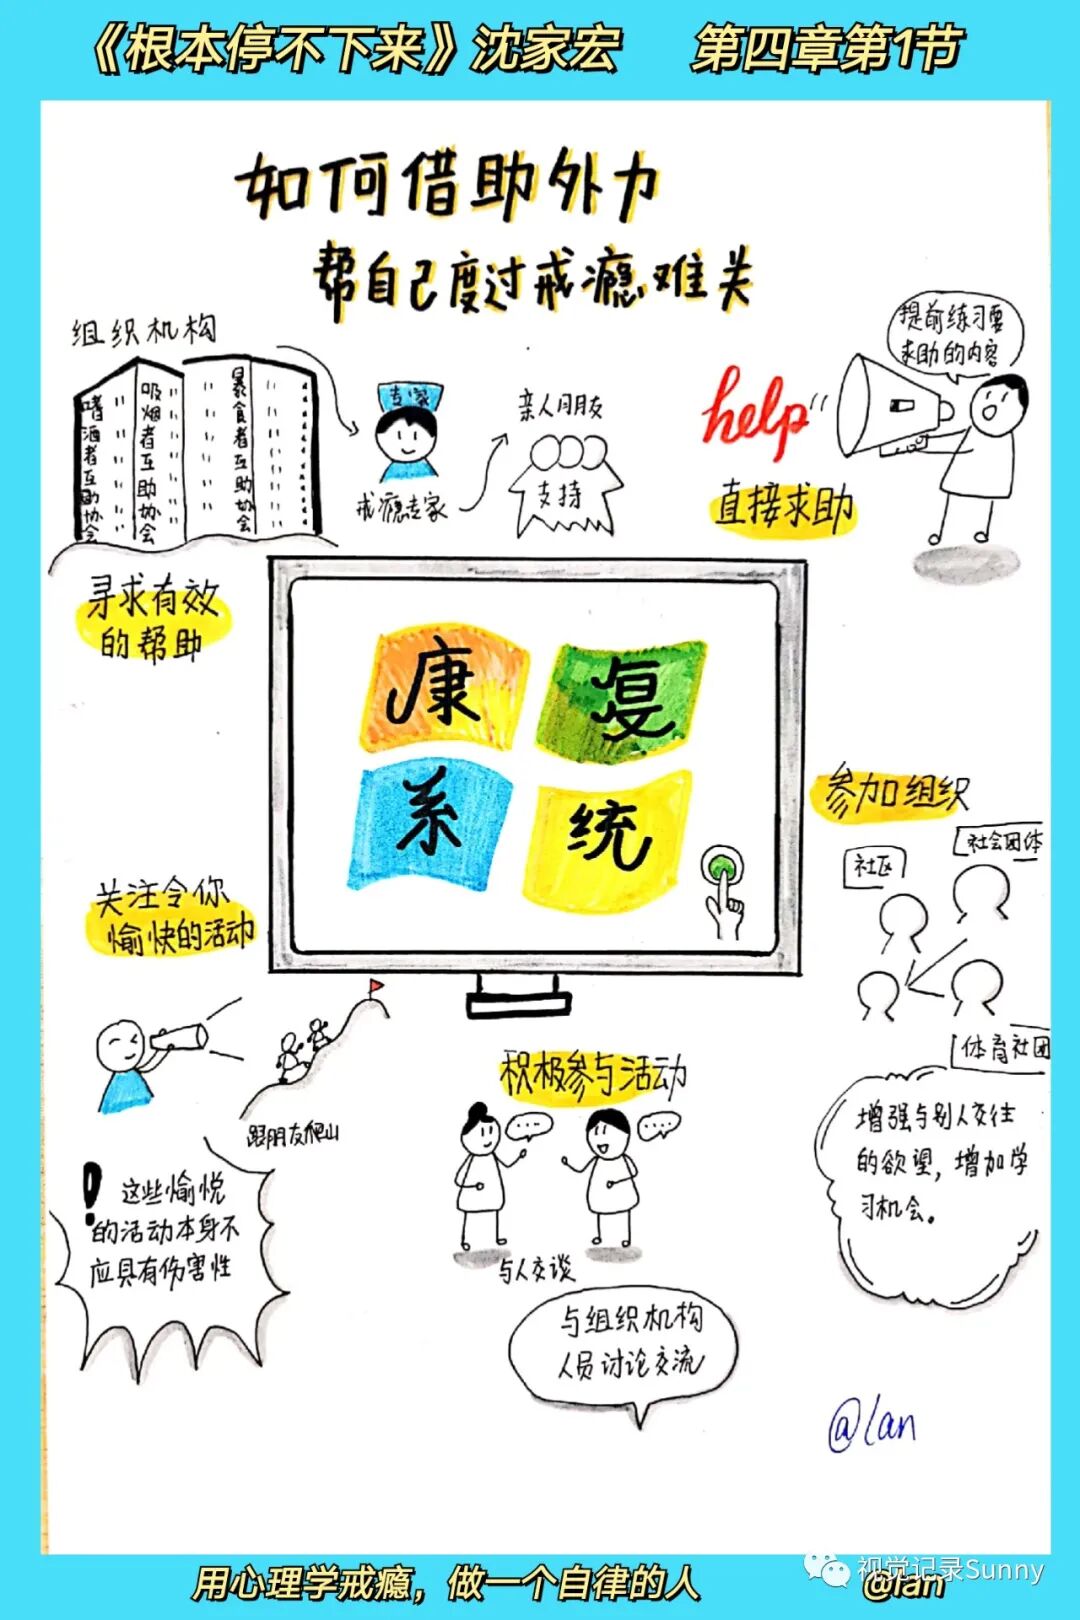 《根本停不下来》沈家宏 第四章第1节
如何借助外力
帮自己度过戒瘾难关
组织机构
嗜酒者互助协会
吸烟者互助协会
暴食者互助协会
专家
戒瘾专家
亲人朋友
支持
寻求有效
的帮助
help
直接求助
提前练习要
求助的内容
康 复
系 统
参加组织
社区
社会团体
体育社团
增强与别人交往
的欲望，增加学
习机会。
关注令你
愉快的活动
跟朋友爬山
! 这些愉悦
的活动本身不
应具有伤害性
积极参与活动
...
...
与人交谈
与组织机构
人员讨论交流
@lan
用心理学戒瘾，做一个自律的人
@lan
视觉记录Sunny